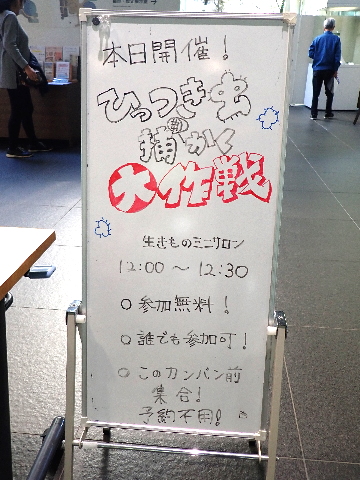 本日開催！
ひっつき虫
捕かく
大作戦
生きものミニサロン
12:00〜12:30
○参加無料！
○誰でも参加可！
○このカンバン前
集合！
予約不用！